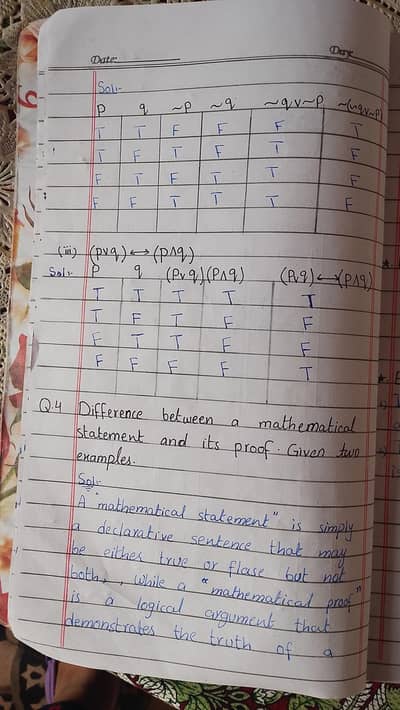 Date: Day:
Sol:-
p q ~p ~q ~q v ~p ~(~q v ~p)
T T F F F T
T F T F T F
F T F T T F
F F T T T F
(iii) (p v q) ↔ (p ∧ q)
Sol:- p q (P v q) (P ∧ q) (P, q) ↔ (P ∧ q)
T T T T T
T F T F F
F T T F F
F F F F T
Q.4 Difference between a mathematical
statement and its proof. Given two
examples.
Sol:-
A "mathematical statement" is simply
a declarative sentence that may
be eithes true or flase but not
both, , while a "mathematical proof"
is a logical argument that
demonstrates the truth of a